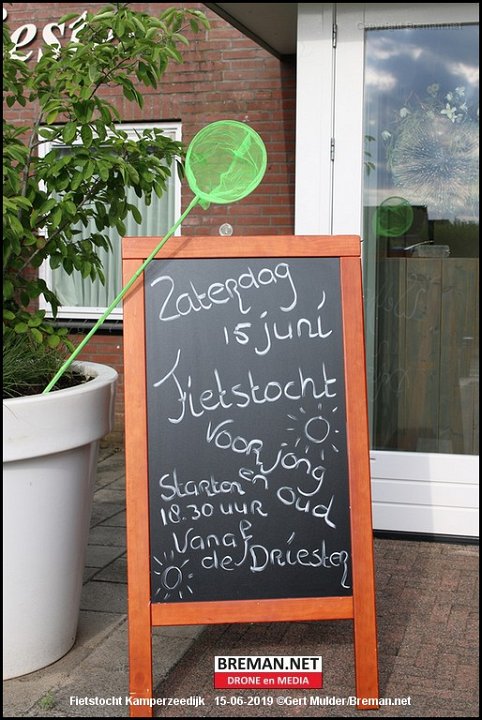 Copyright Breman.net
Zaterdag
15 juni
Fietstocht
Voor
Jong
en
oud
Starten
18.30 uur
Vanaf
de Driester
BREMAN.NET
DRONE en MEDIA
Fietstocht Kamperzeedijk 15-06-2019 ©Gert Mulder/Breman.net